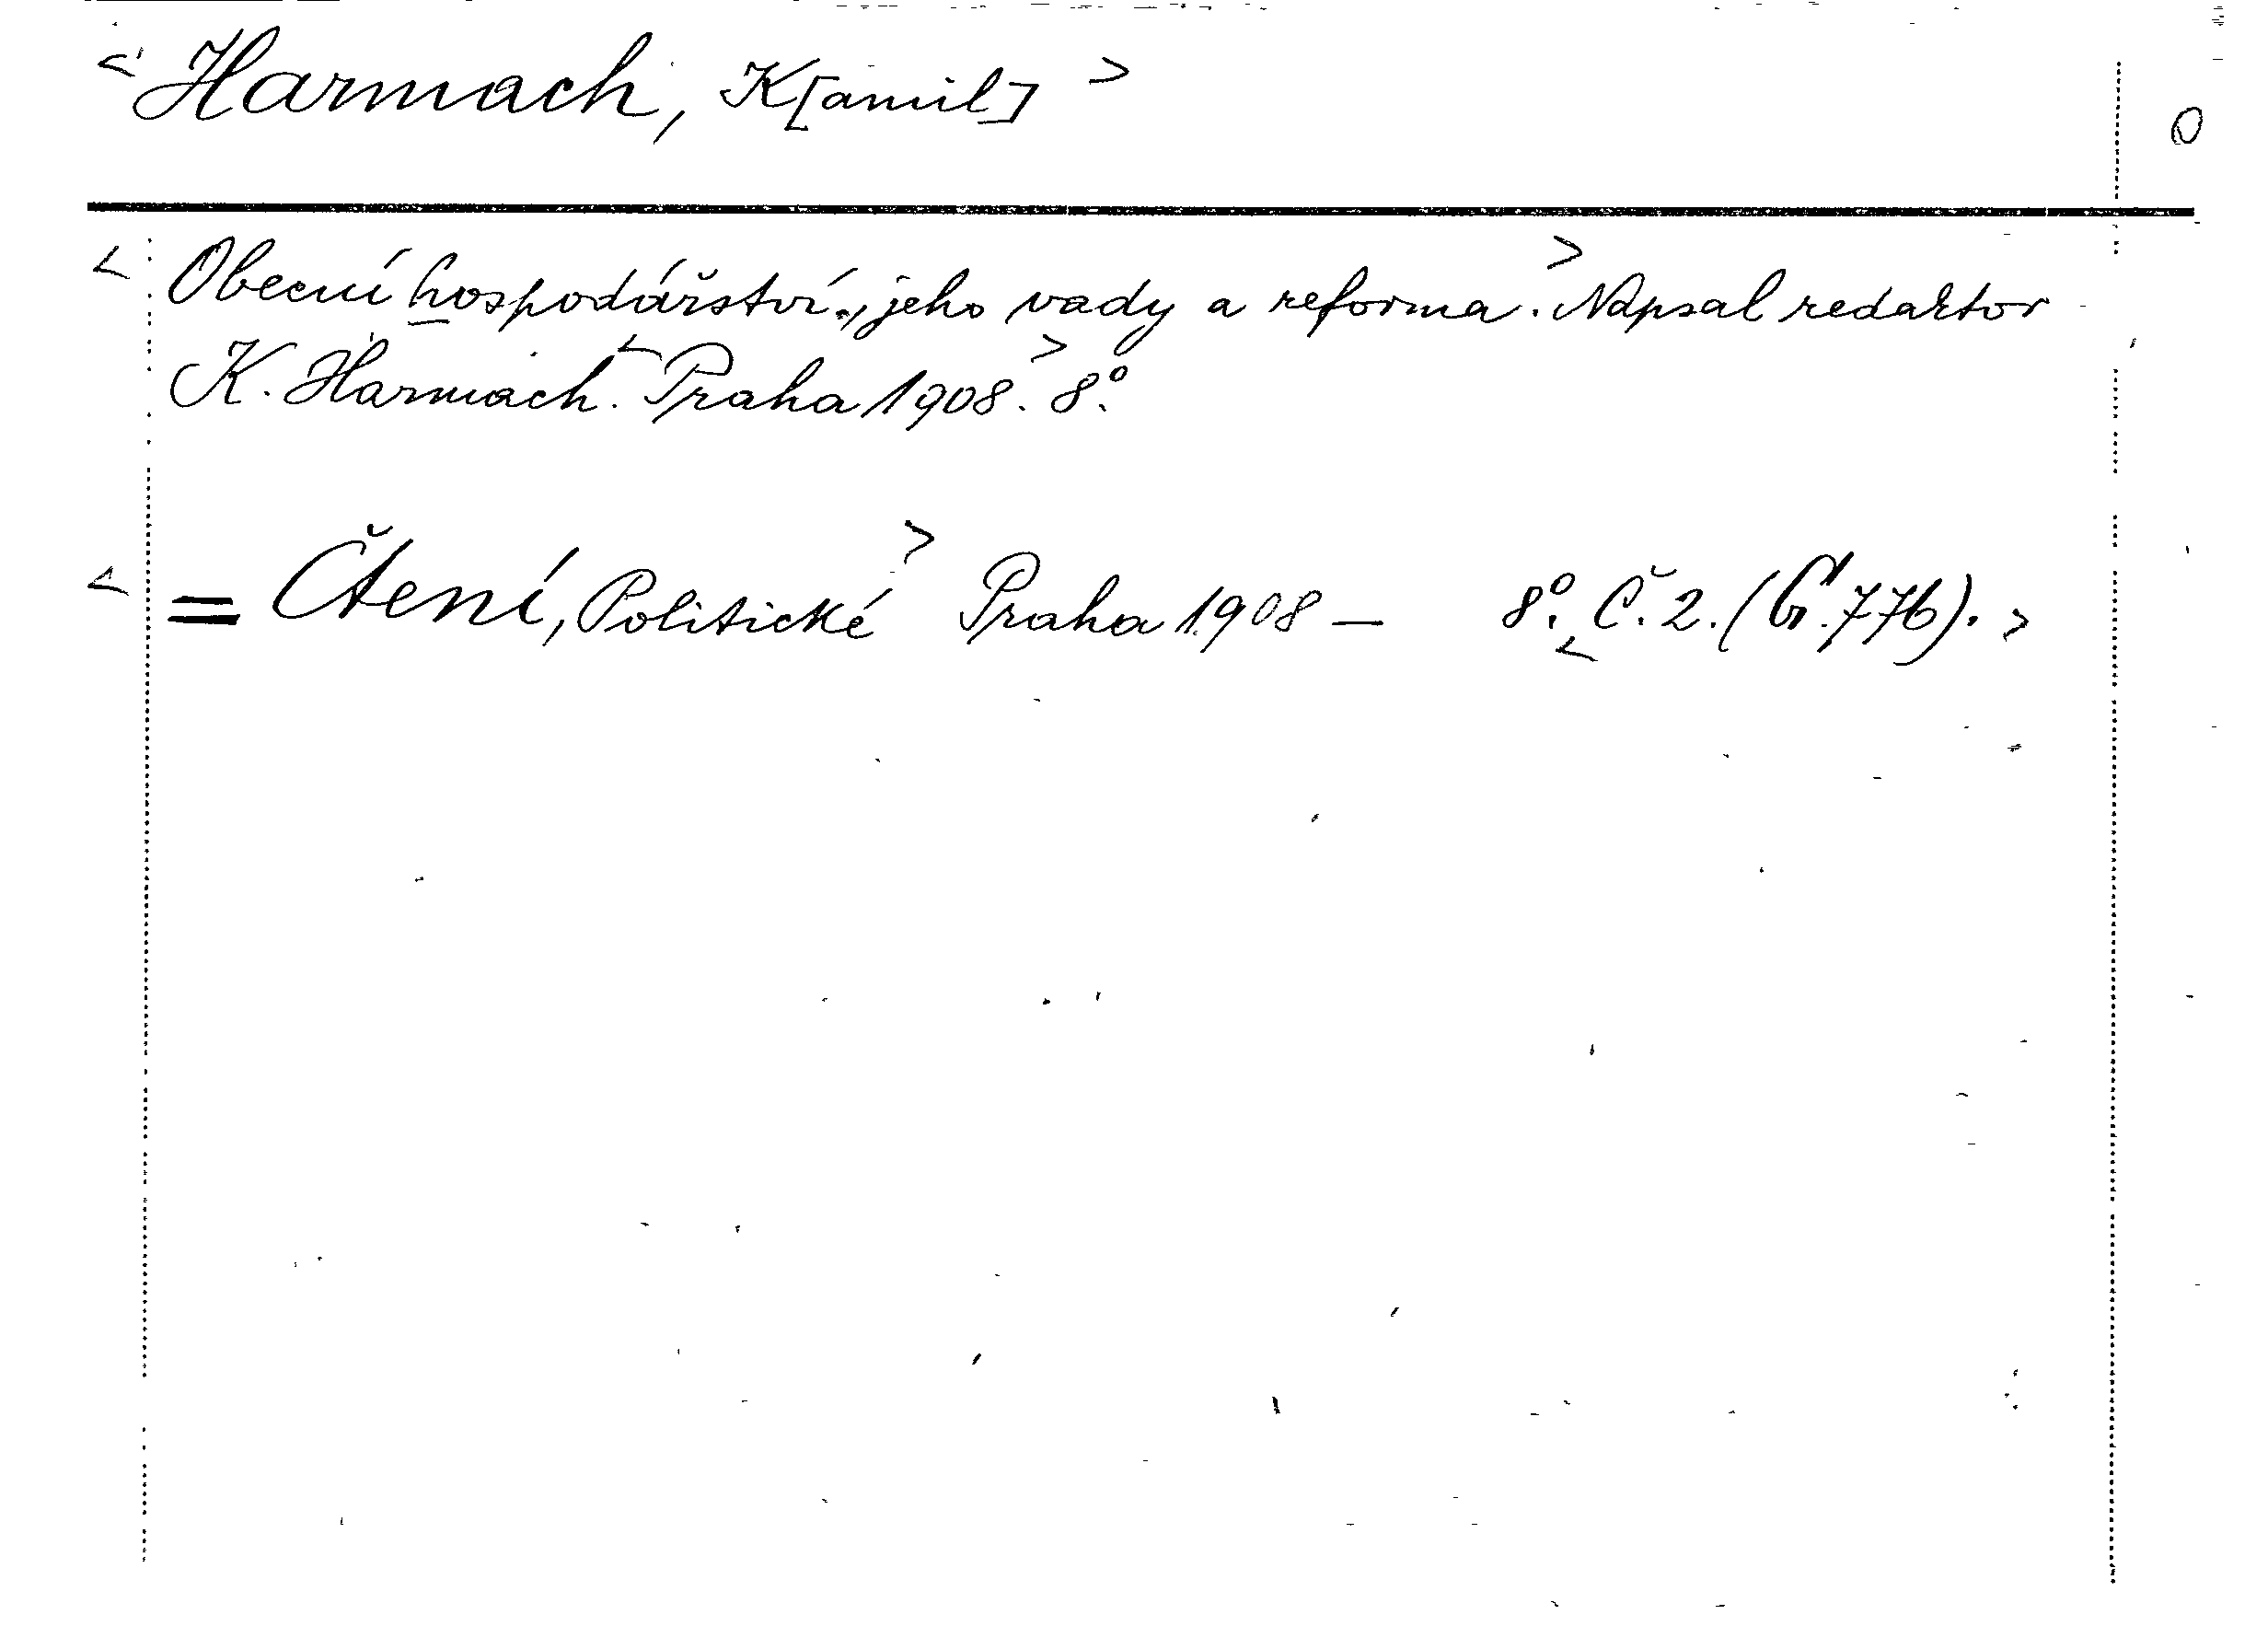 < Harmach, K[amil] > 0
< Obecní hospodářství, jeho vady a reforma. > Napsal redaktor
K. Harmach. < Praha 1908. > 8°.
< = Čtení, Politické > Praha 1908 — 8°. < Č. 2. (G. 776). >